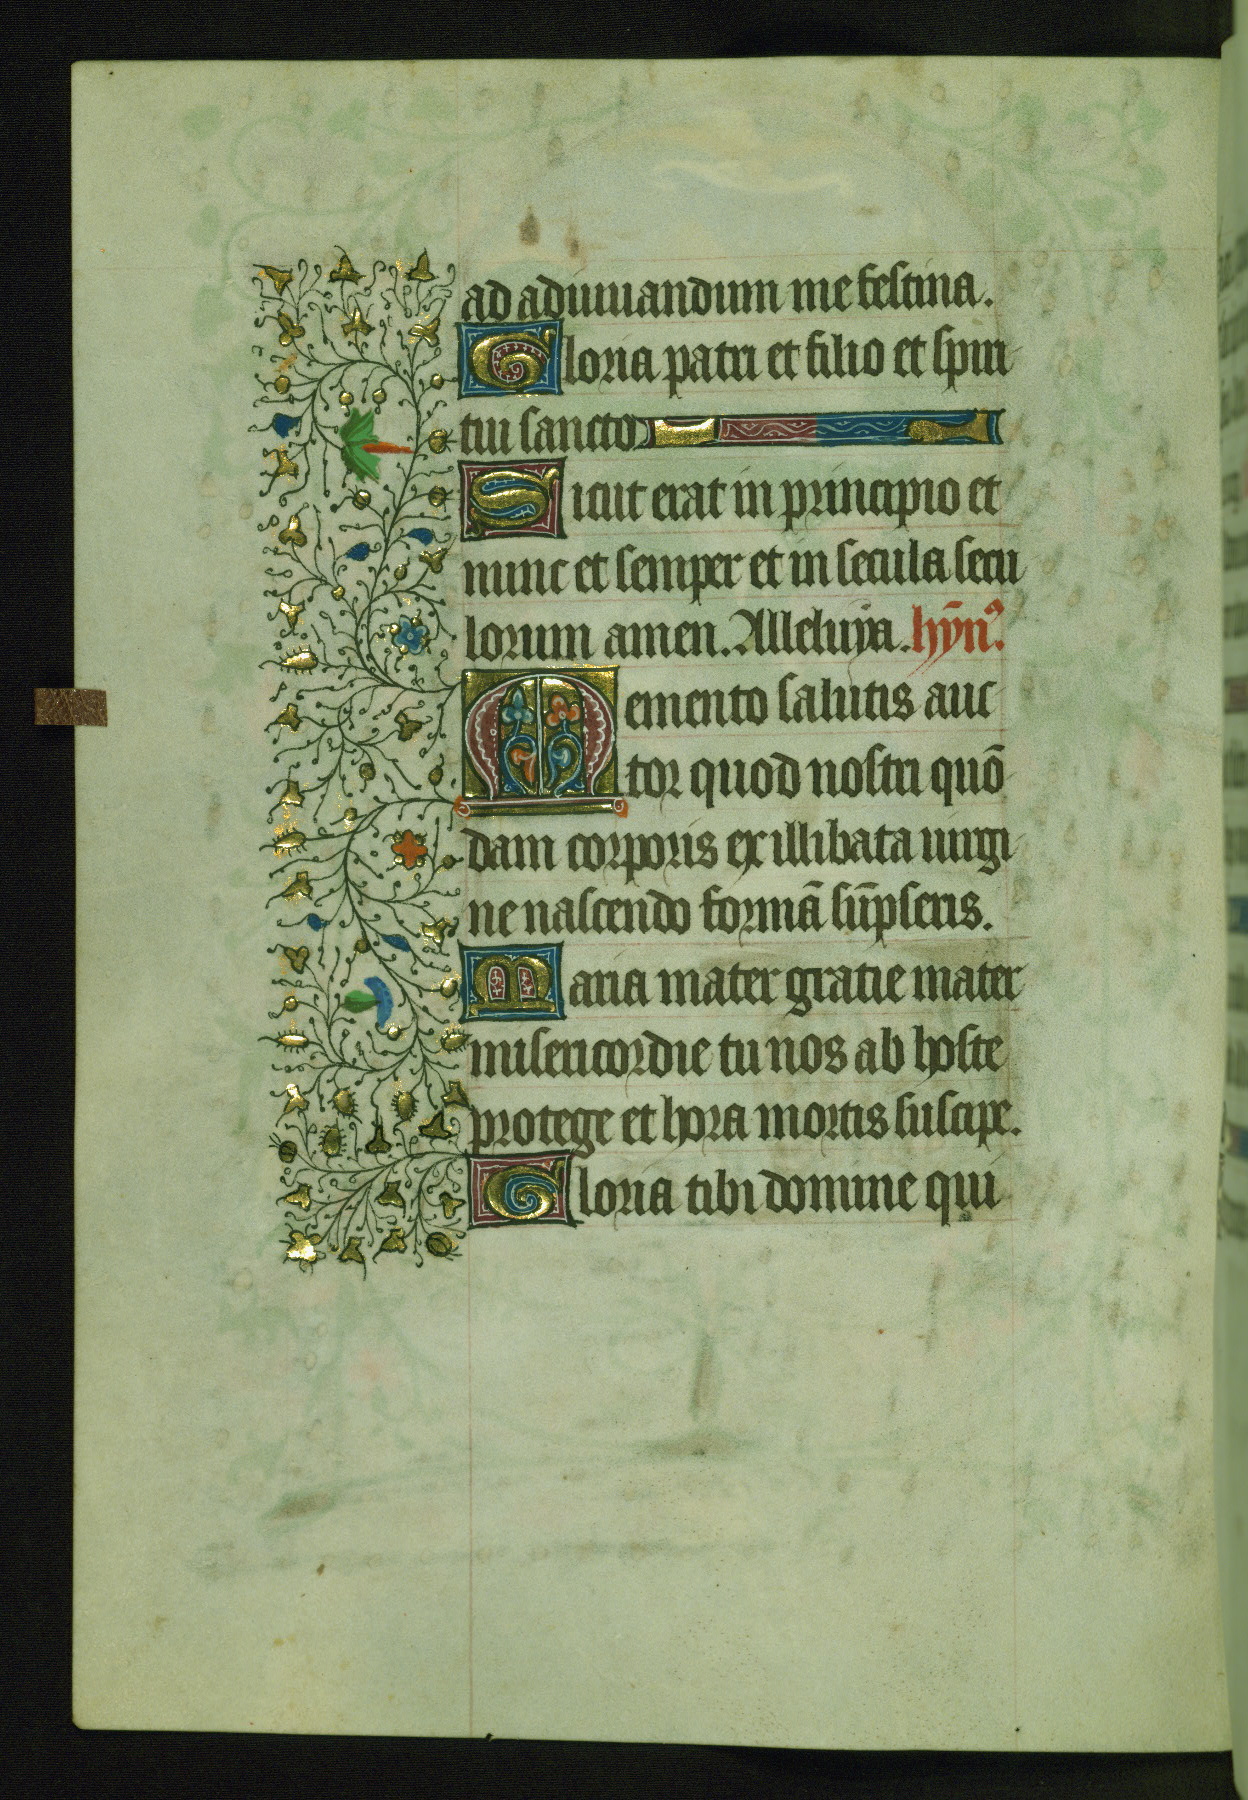 ad adiuuandum me festina.
Gloria patri et filio et spiri
tui sancto
Sicut erat in principio et
nunc et semper et in secula secu
lorum amen. Alleluya. hȳnꝰ.
Memento salutis auc
tor quod nostri quō
dam corporis ex illibata uirgi
ne nascendo formā sūpseris.
Maria mater gratie mater
misericordie tu nos ab hoste
protege et hora mortis suscipe.
Gloria tibi domine qui